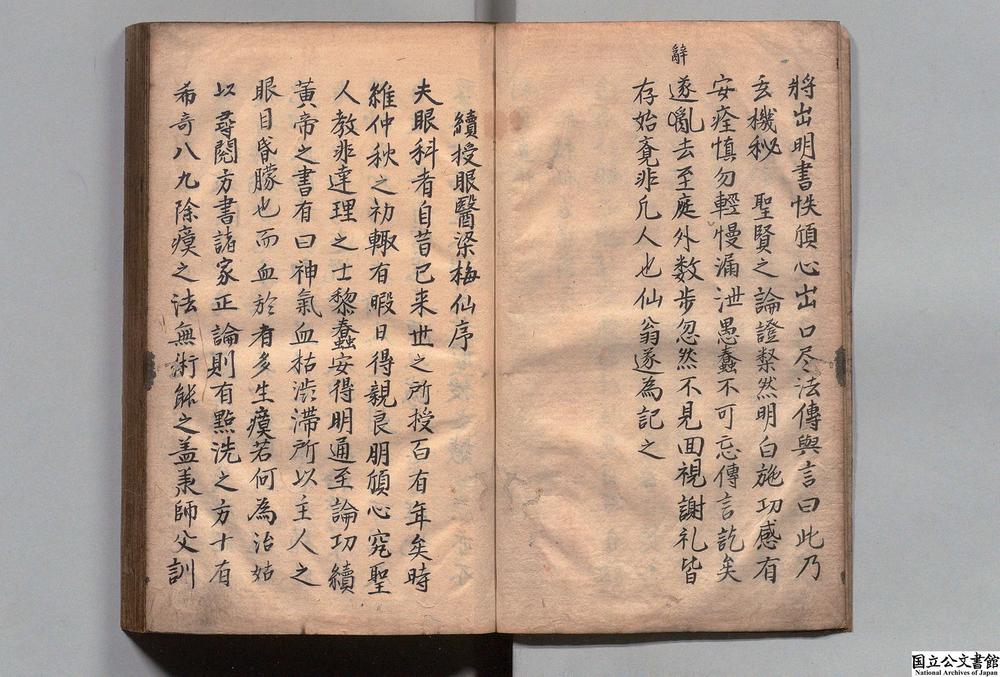 將出明書帙傾心出口尽法傳與言曰此乃
玄機秘 聖賢之論證粲然明白施功感有
安痊慎勿輕慢漏泄愚蠢不可忘傳言訖矣
辭
遂亂去至庭外数步忽然不見回視謝礼皆
存始竟非凡人也仙翁遂為記之
續授眼醫梁梅仙序
夫眼科者自昔已来世之所授百有年矣時
維仲秋之初輙有暇日得親良朋傾心究聖
人教非達理之士黎蠢安得明通至論功續
黃帝之書有曰神氣血枯澁滯所以主人之
眼目昏朦也而血於者多生瘼若何為治姑
以尋閱方書諸家正論則有點洗之方十有
希奇八九除瘼之法無術能之盖秉師父訓
国立公文書館
National Archives of Japan